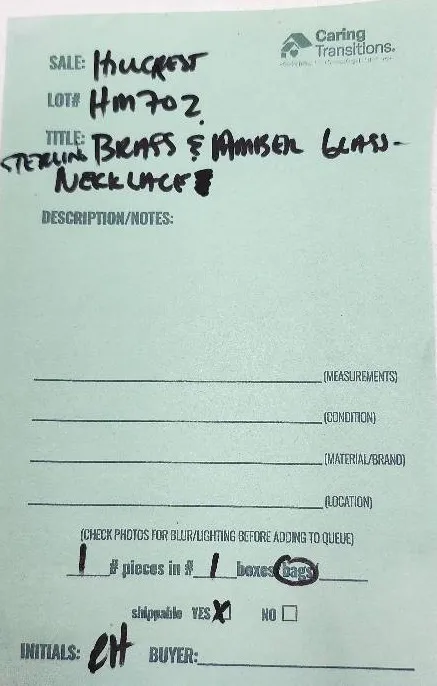 Caring
Transitions.
SALE: HILLCREST
LOT# HM702
TITLE: STERLING BRASS & AMBER GLASS-
NECKLACE
DESCRIPTION/NOTES:
(MEASUREMENTS)
(CONDITION)
(MATERIAL/BRAND)
(LOCATION)
(CHECK PHOTOS FOR BLUR/LIGHTING BEFORE ADDING TO QUEUE)
1 # pieces in # 1 boxes/bags/
shippable YES X NO
INITIALS: CH BUYER: